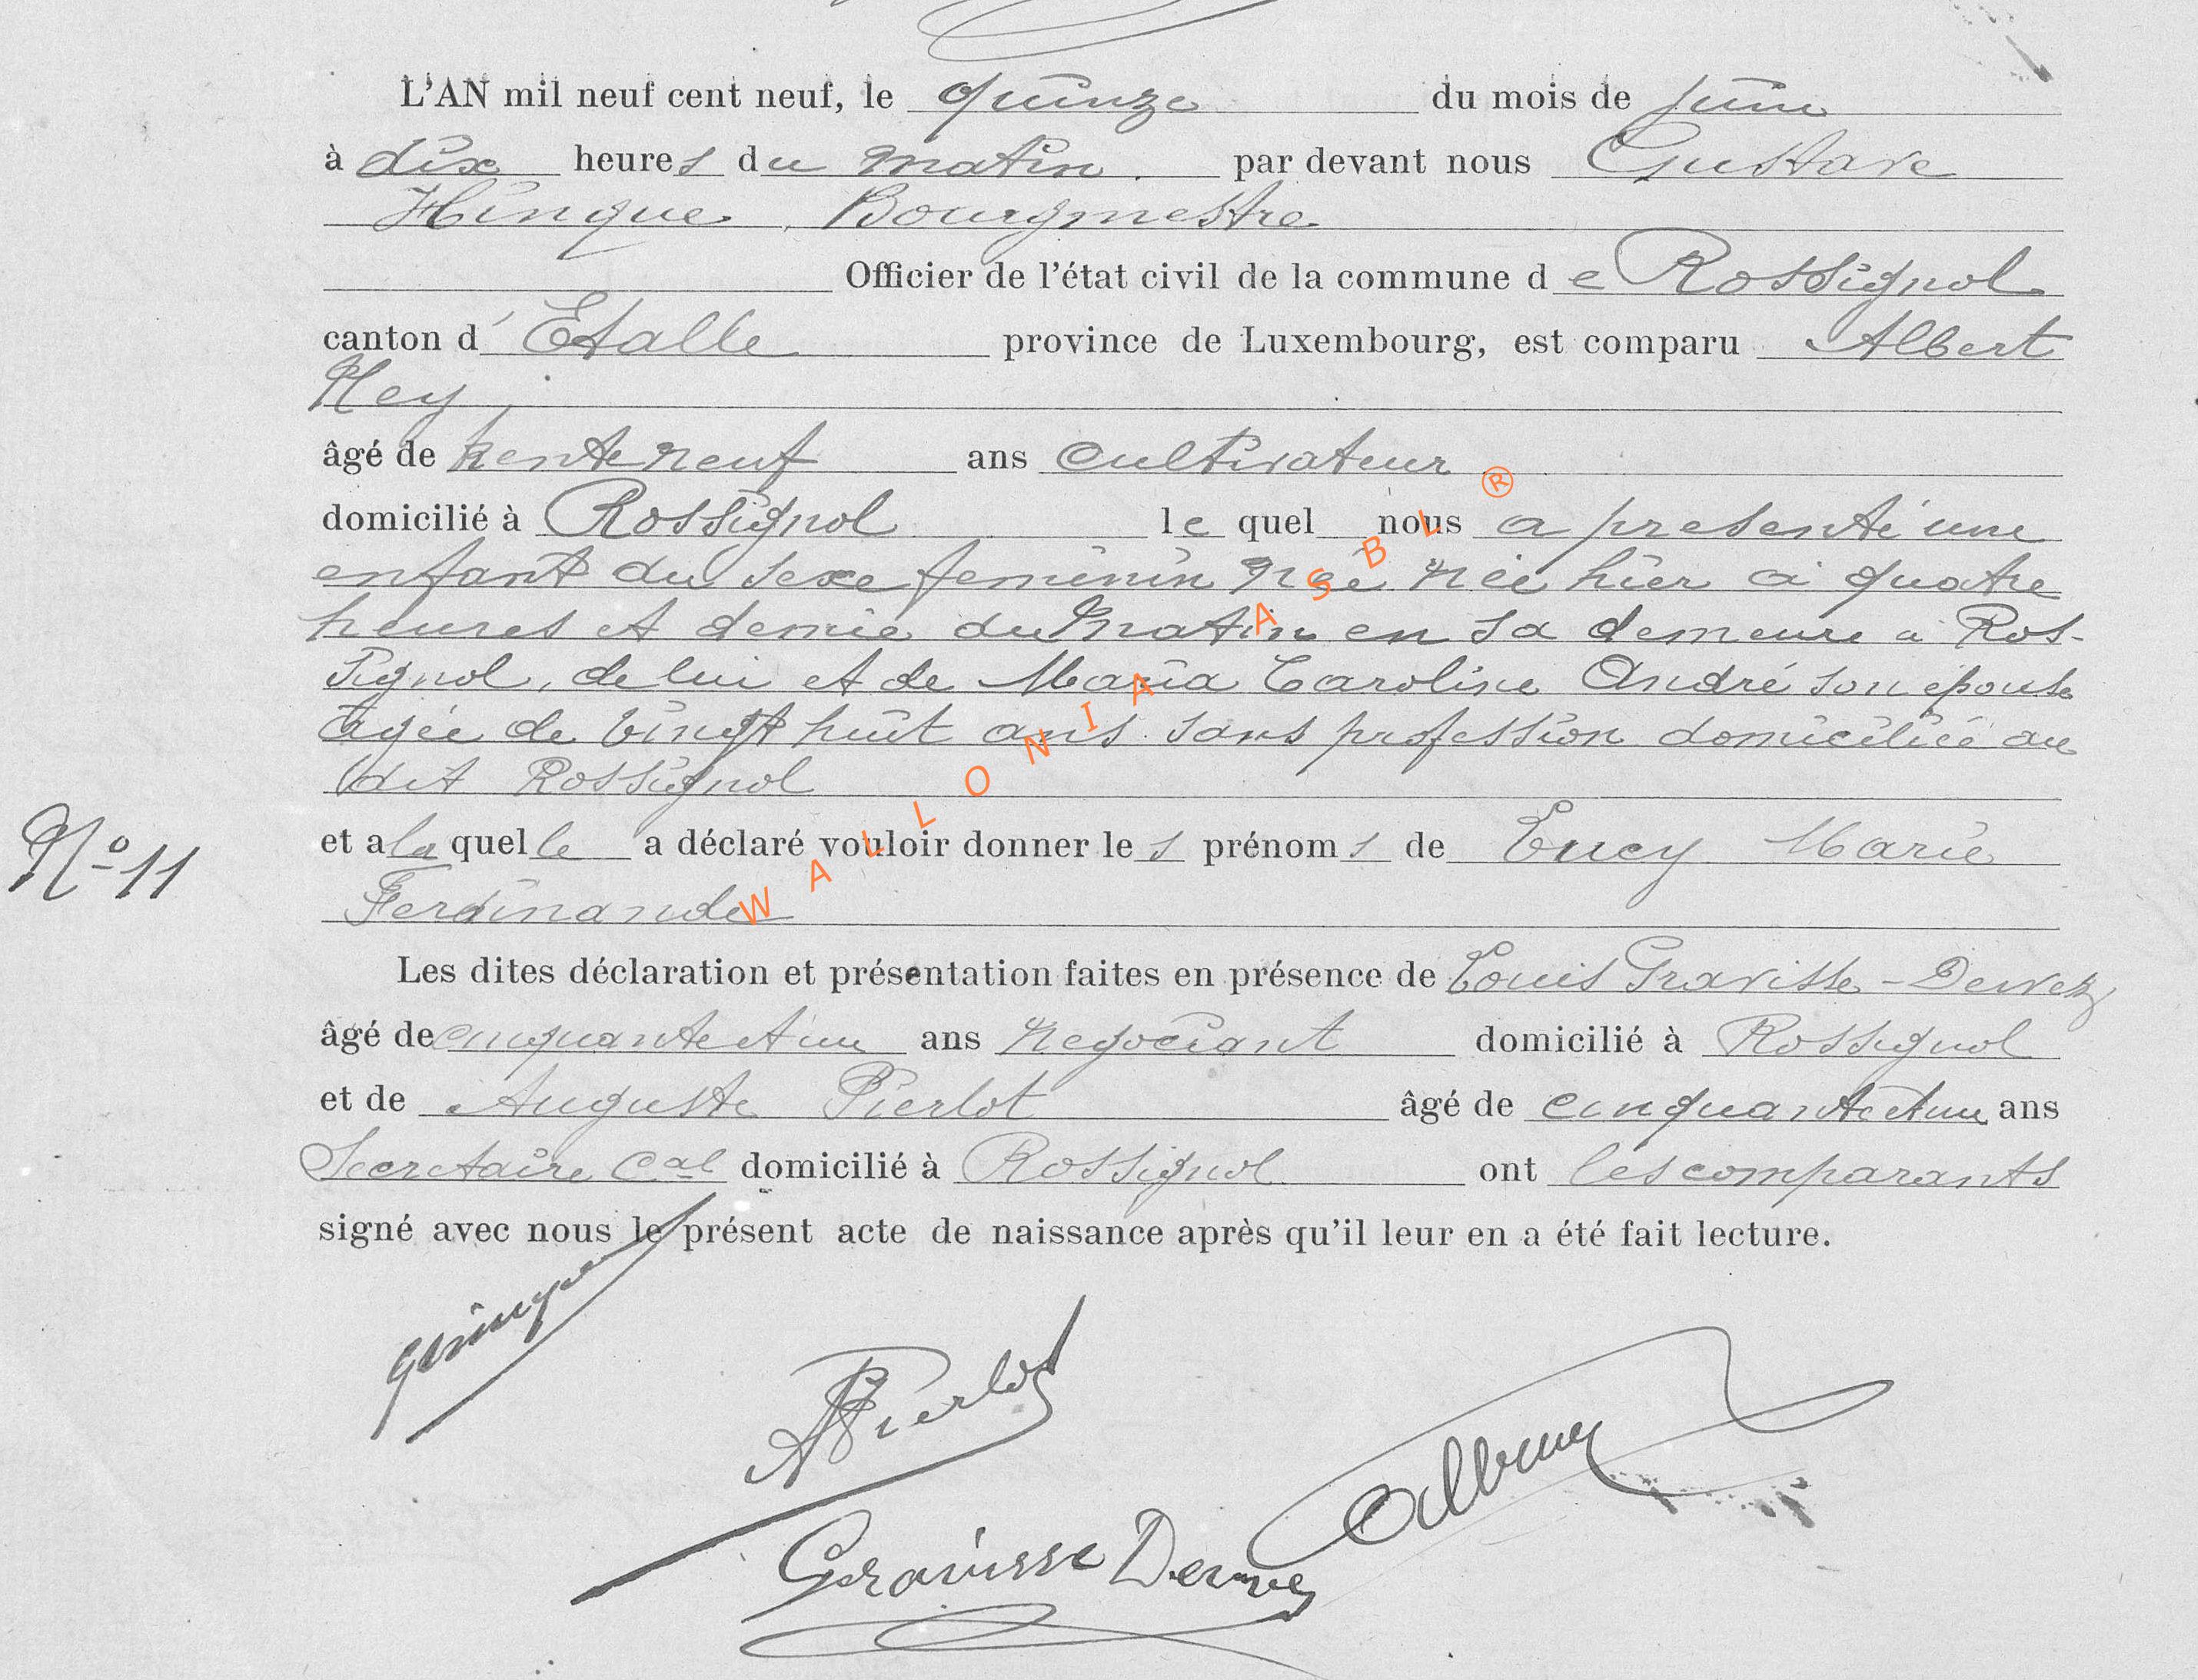 L'AN mil neuf cent neuf, le quinze du mois de juin
à dix heures du matin. par devant nous Gustave
Hinque, Bourgmestre
Officier de l'état civil de la commune de Rossignol
canton d'Etalle province de Luxembourg, est comparu Albert
Ney,
âgé de trente neuf ans cultivateur
domicilié à Rossignol le quel nous a présenté une
enfant du sexe feminin née née hier à quatre
heures et demie du matin en sa demeure à Ros-
signol, de lui et de Maria Caroline André son épouse
agée de vingt huit ans sans profession domiciliée au
dit Rossignol
et a la quelle a déclaré vouloir donner les prénoms de Lucy Marie
Ferdinande
N° 11
Les dites déclaration et présentation faites en présence de Louis Gravisse-Dervez
âgé de cinquante et un ans négociant domicilié à Rossignol
et de Auguste Pierlot âgé de cinquante et un ans
Secretaire Cal domicilié à Rossignol ont les comparants
signé avec nous le présent acte de naissance après qu'il leur en a été fait lecture.
APierlot
Gravisse
WALLONIA ASBL ®